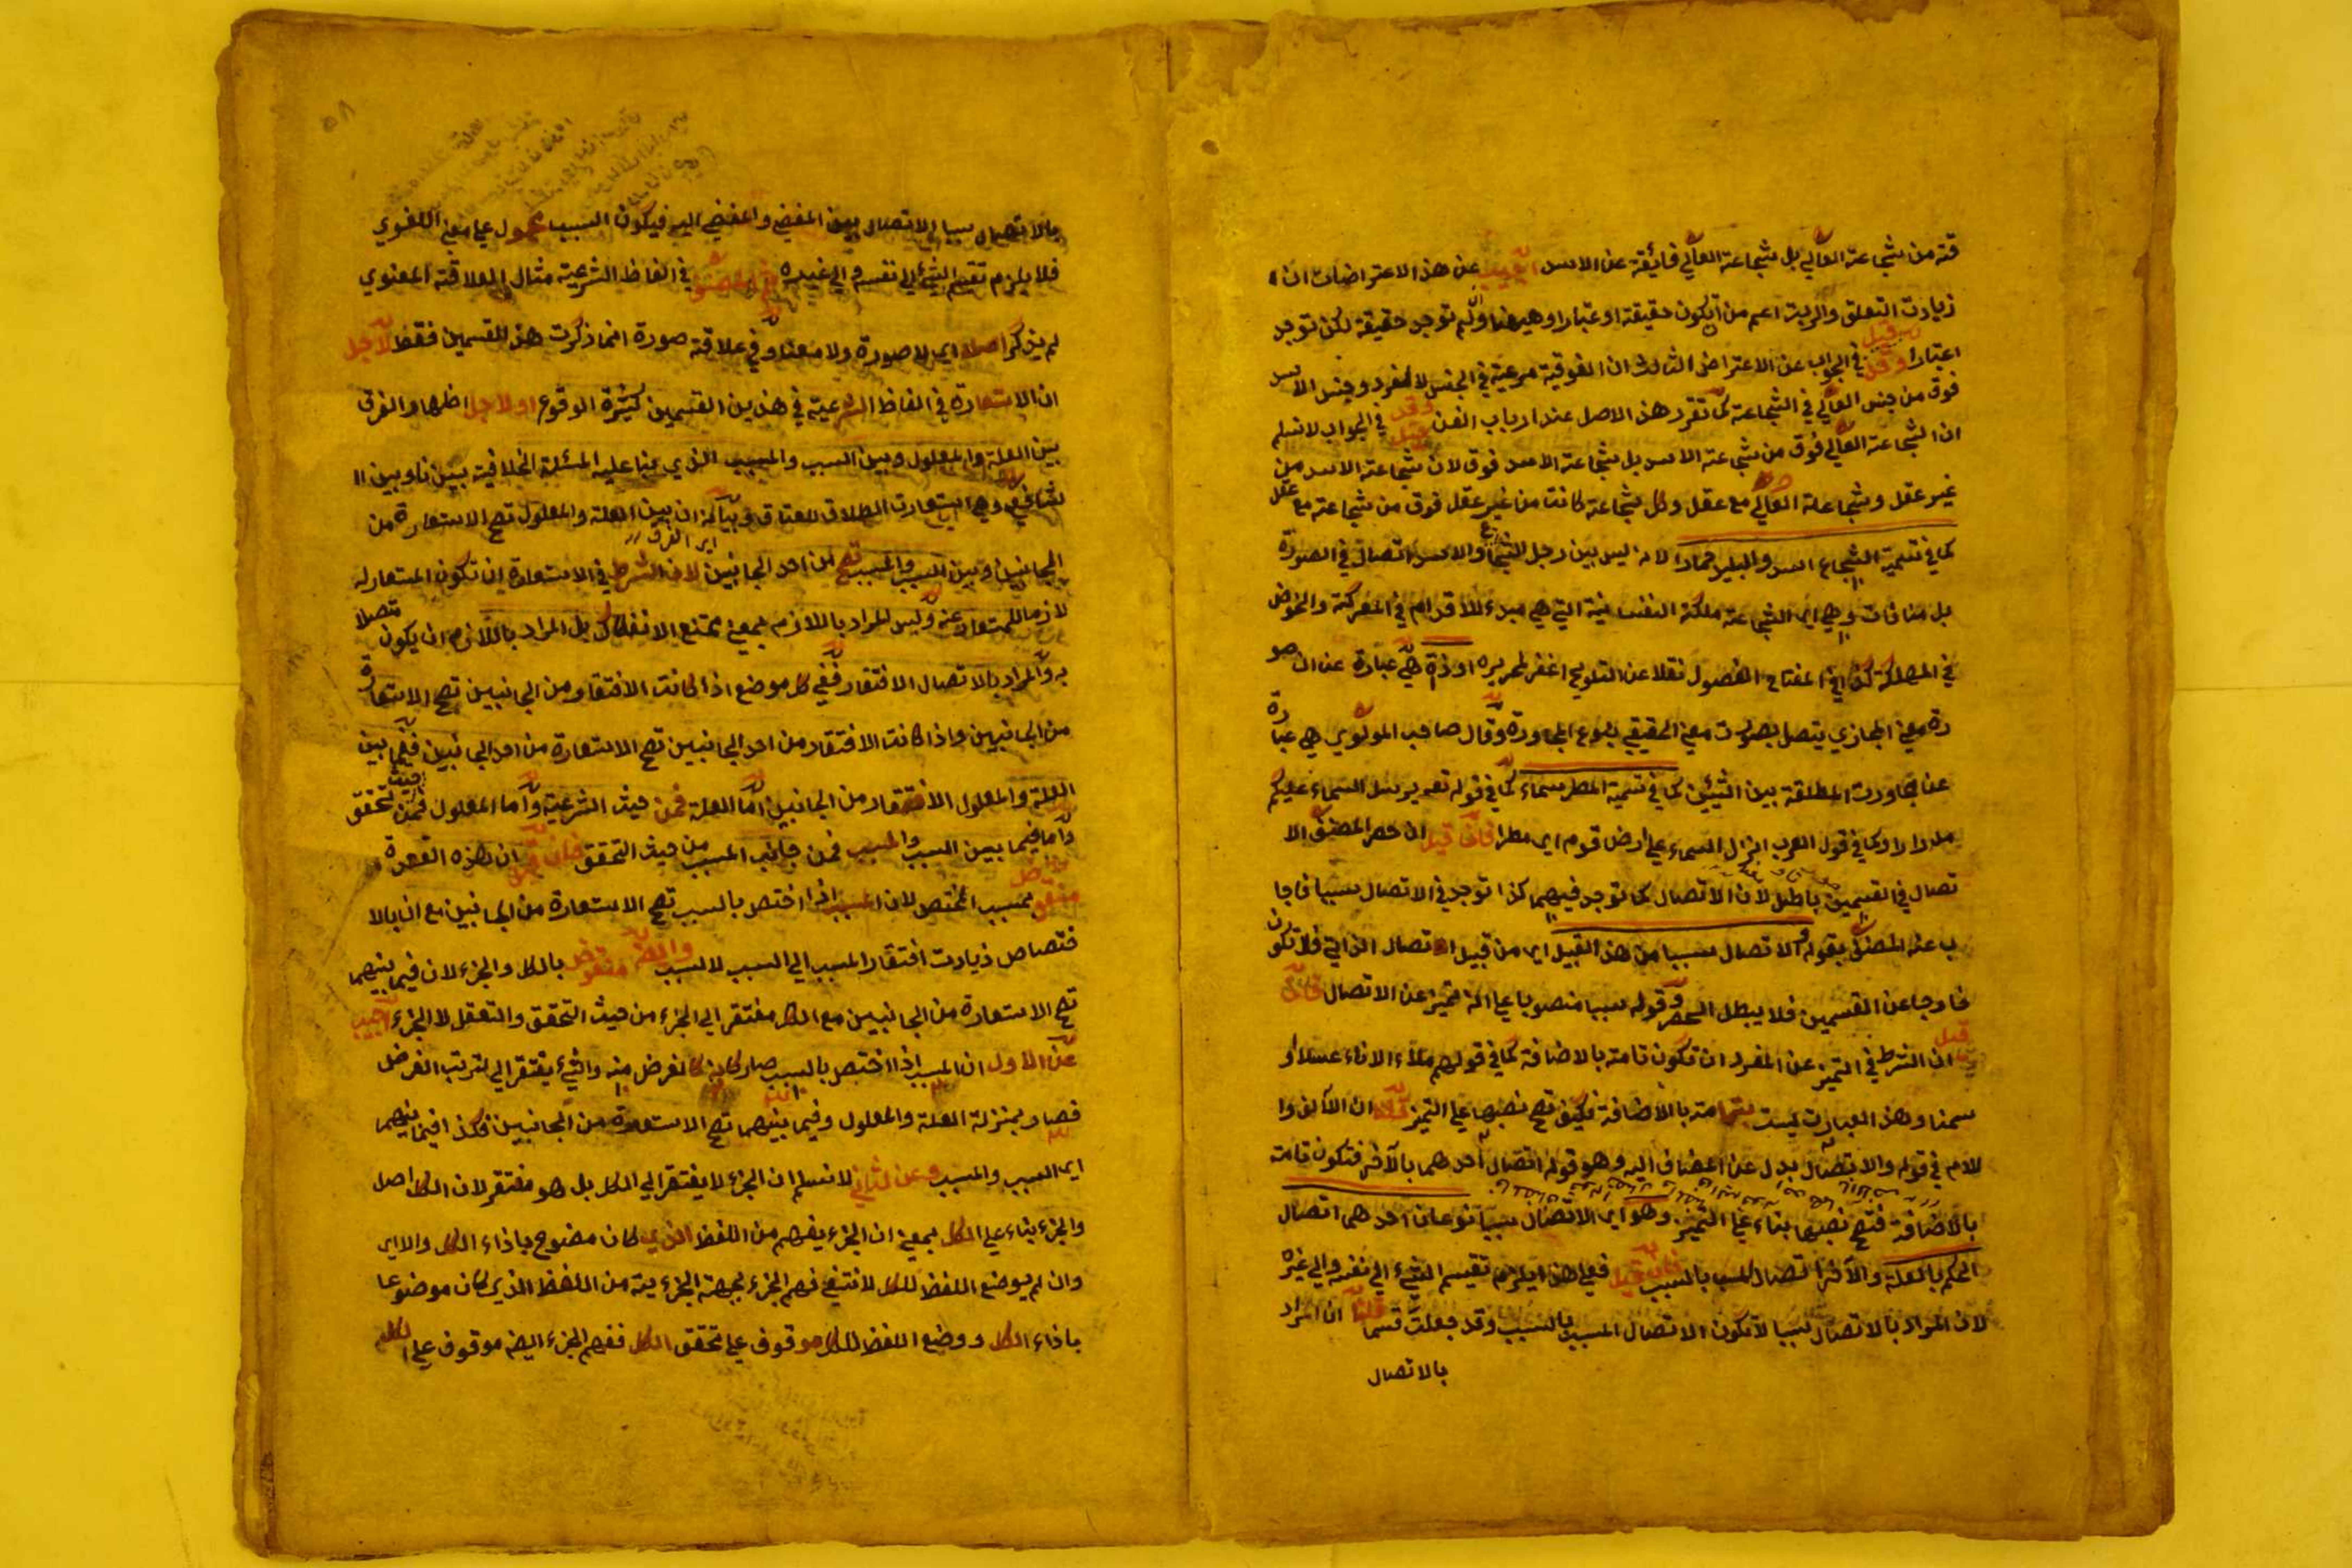 قته من شجاعته العالي بل شجاعة العالي فايقة عن الاسد اجيب عن هذا الاعتراضات ان
زيادت التعلق والرتبة اعم من ان تكون حقيقة او عتبارا وههنا ولم توجد حقيقة لكن توجد
اعتبارا وقد قيل في الجواب عن الاعتراض الثالث ان الفوقية مرعية في الجنس لا المفرد وجنس الاسد
فوق من جنس العالي في الشجاعة كما تقرر هذا الاصل عند ارباب الفن وقد قيل في الجواب لا نسلم
ان الشجاعة العالي فوق من شجاعته الاسد بل شجاعة الاسد فوق لان شجاعة الاسد من
غير عقل وشجاعة العالي مع عقل وكل شجاعة كانت من غير عقل فوق من شجاعته مع عقل
كما في تسمية الشجاع اسد والبليد حمارا لانه ليس بين رجل الشجاع والاسد اتصال في الصورة
بل وهي اي الشجاعة ملكة النفسانية التي هي مبدء للاقدام في المعركة والخوض
في المهلكة كذا في المفتاح الفصول نقلا عن التلويح اغفر لمحرره او صورة هي عبارة عن ان
معنى المجازي يتصل بصورت معنى الحقيقي بنوع المجاورة وقال صاحب المولوي هي عبارة
عن مجاورت المطلقة بين الشيئين كما في تسمية المطر سماء كما في قوله تع يرسل السماء عليكم
مدرارا وكما في قول العرب انزل السماء على ارض قوم اي مطرا فان قيل ان حصر المصنف الا
تصال في القسمين باطل لان الاتصال كما توجد فيهما كذا توجد في الاتصال سببا فاجا
ب عنه المصنف بقوله والاتصال سببا من هذا القبيل اي من قبيل اتصال الذاتي فلا تكون
خارجا عن القسمين فلا يبطل الحصر وقوله سببا منصوبا على انه تميز عن الاتصال فان
قيل ان الشرط في التميز عن المفرد ان تكون تامة بالاضافة كما في قولهم ملاء الاناء عسلا و
سمنا وهذا العبارت ليست بتامة بالاضافة فكيف تصح نصبها على التميز قلنا ان الالف وا
للام في قوله والاتصال بدل عن المضاف اليه وهو قوله اتصال احدهما بالآخر فتكون تامة
بالاضافة فتصح نصبها بناء على التميز وهو اي الاتصال سببا نوعان احدهما اتصال
الحكم بالعلة والآخر اتصال المسبب بالسبب فان قيل فعلى هذا يلزم تقسيم الشيء الى نفسه والى غيره
لان المراد بالاتصال سببا لا تكون الا اتصال المسبب بالسبب وقد جعلت قسما قلنا ان المراد
بالاتصال
بالاتصال سببا الاتصال بين المفضي والمفضي اليه فيكون السبب محمول على معنى اللغوي
فلا يلزم تقسيم الشيء الى نفسه والى غيره ثم المصنف في الفاظ الشرعية مثال العلاقة المعنوي
لم يذكر اصلا اي لا صورة ولا معنا وفي علاقة صورة انما ذكرت هذا القسمين فقط لاجل
ان الاستعارة في الفاظ الشرعية في هذين القسمين كثيرة الوقوع او لاجل اظهار الفرق
بين العلة والمعلول وبين السبب والمسبب الذي بنا عليه المسئلة الخلافية بيننا وبين ا
لشافعي وهي استعارت الطلاق للعتاق وبيانه ان بين العلة والمعلول تصح الاستعارة من
اي الفرق
الجانبين وبين السبب والمسبب تصح من احد الجانبين لان الشرط في الاستعارة ان تكون المستعار له
لازما للمستعار عنه وليس المراد باللازم بمعنى ممتنع الانفكاك بل المراد باللازم ان يكون متصلا
به والمراد بالاتصال الافتقار ففي كل موضع اذا كانت الافتقار من الجانبين تصح الاستعارة
من الجانبين واذا كانت الافتقار من احد الجانبين تصح الاستعارة من احد الجانبين ففيما بين
العلة والمعلول الافتقار من الجانبين اما العلة فمن حيث الشرعية واما المعلول فمن حيث تحقق
واما فيما بين السبب والمسبب فمن جانب المسبب من حيث التحقق فان قيل ان هذه القاعدة
منقوض بمسبب المختص لان المسبب اذا اختص بالسبب تصح الاستعارة من الجانبين مع ان بالا
ختصاص زيادت افتقار المسبب الى السبب لا السبب وايضا منقوض بالكل والجزء لان فيما بينهما
تصح الاستعارة من الجانبين مع الكل مفتقر الى الجزء من حيث التحقق والتعقل لا الجزء اجيب
عن الاول ان المسبب اذا اختص بالسبب صار كالغرض منه والشيء يفتقر الى ترتب الغرض
فصار بمنزلة العلة والمعلول وفيما بينهما تصح الاستعارة من الجانبين فكذا فيما بينهما
اي السبب والمسبب وعن الثاني لا نسلم ان الجزء لا يفتقر الى الكل بل هو مفتقر لان الكل اصل
والجزء بناء على الكل بمعنى ان الجزء يفهم من اللفظ الذي كان موضوع باذاء الكل والا اي
وان لم يوضع اللفظ للكل لانتفى فهم الجزء بجهة الجزءية من اللفظ الذي كان موضوعا
باذاء الكل ووضع اللفظ للكل موقوف على تحقق الكل ففهم الجزء ايضا موقوف على الكل